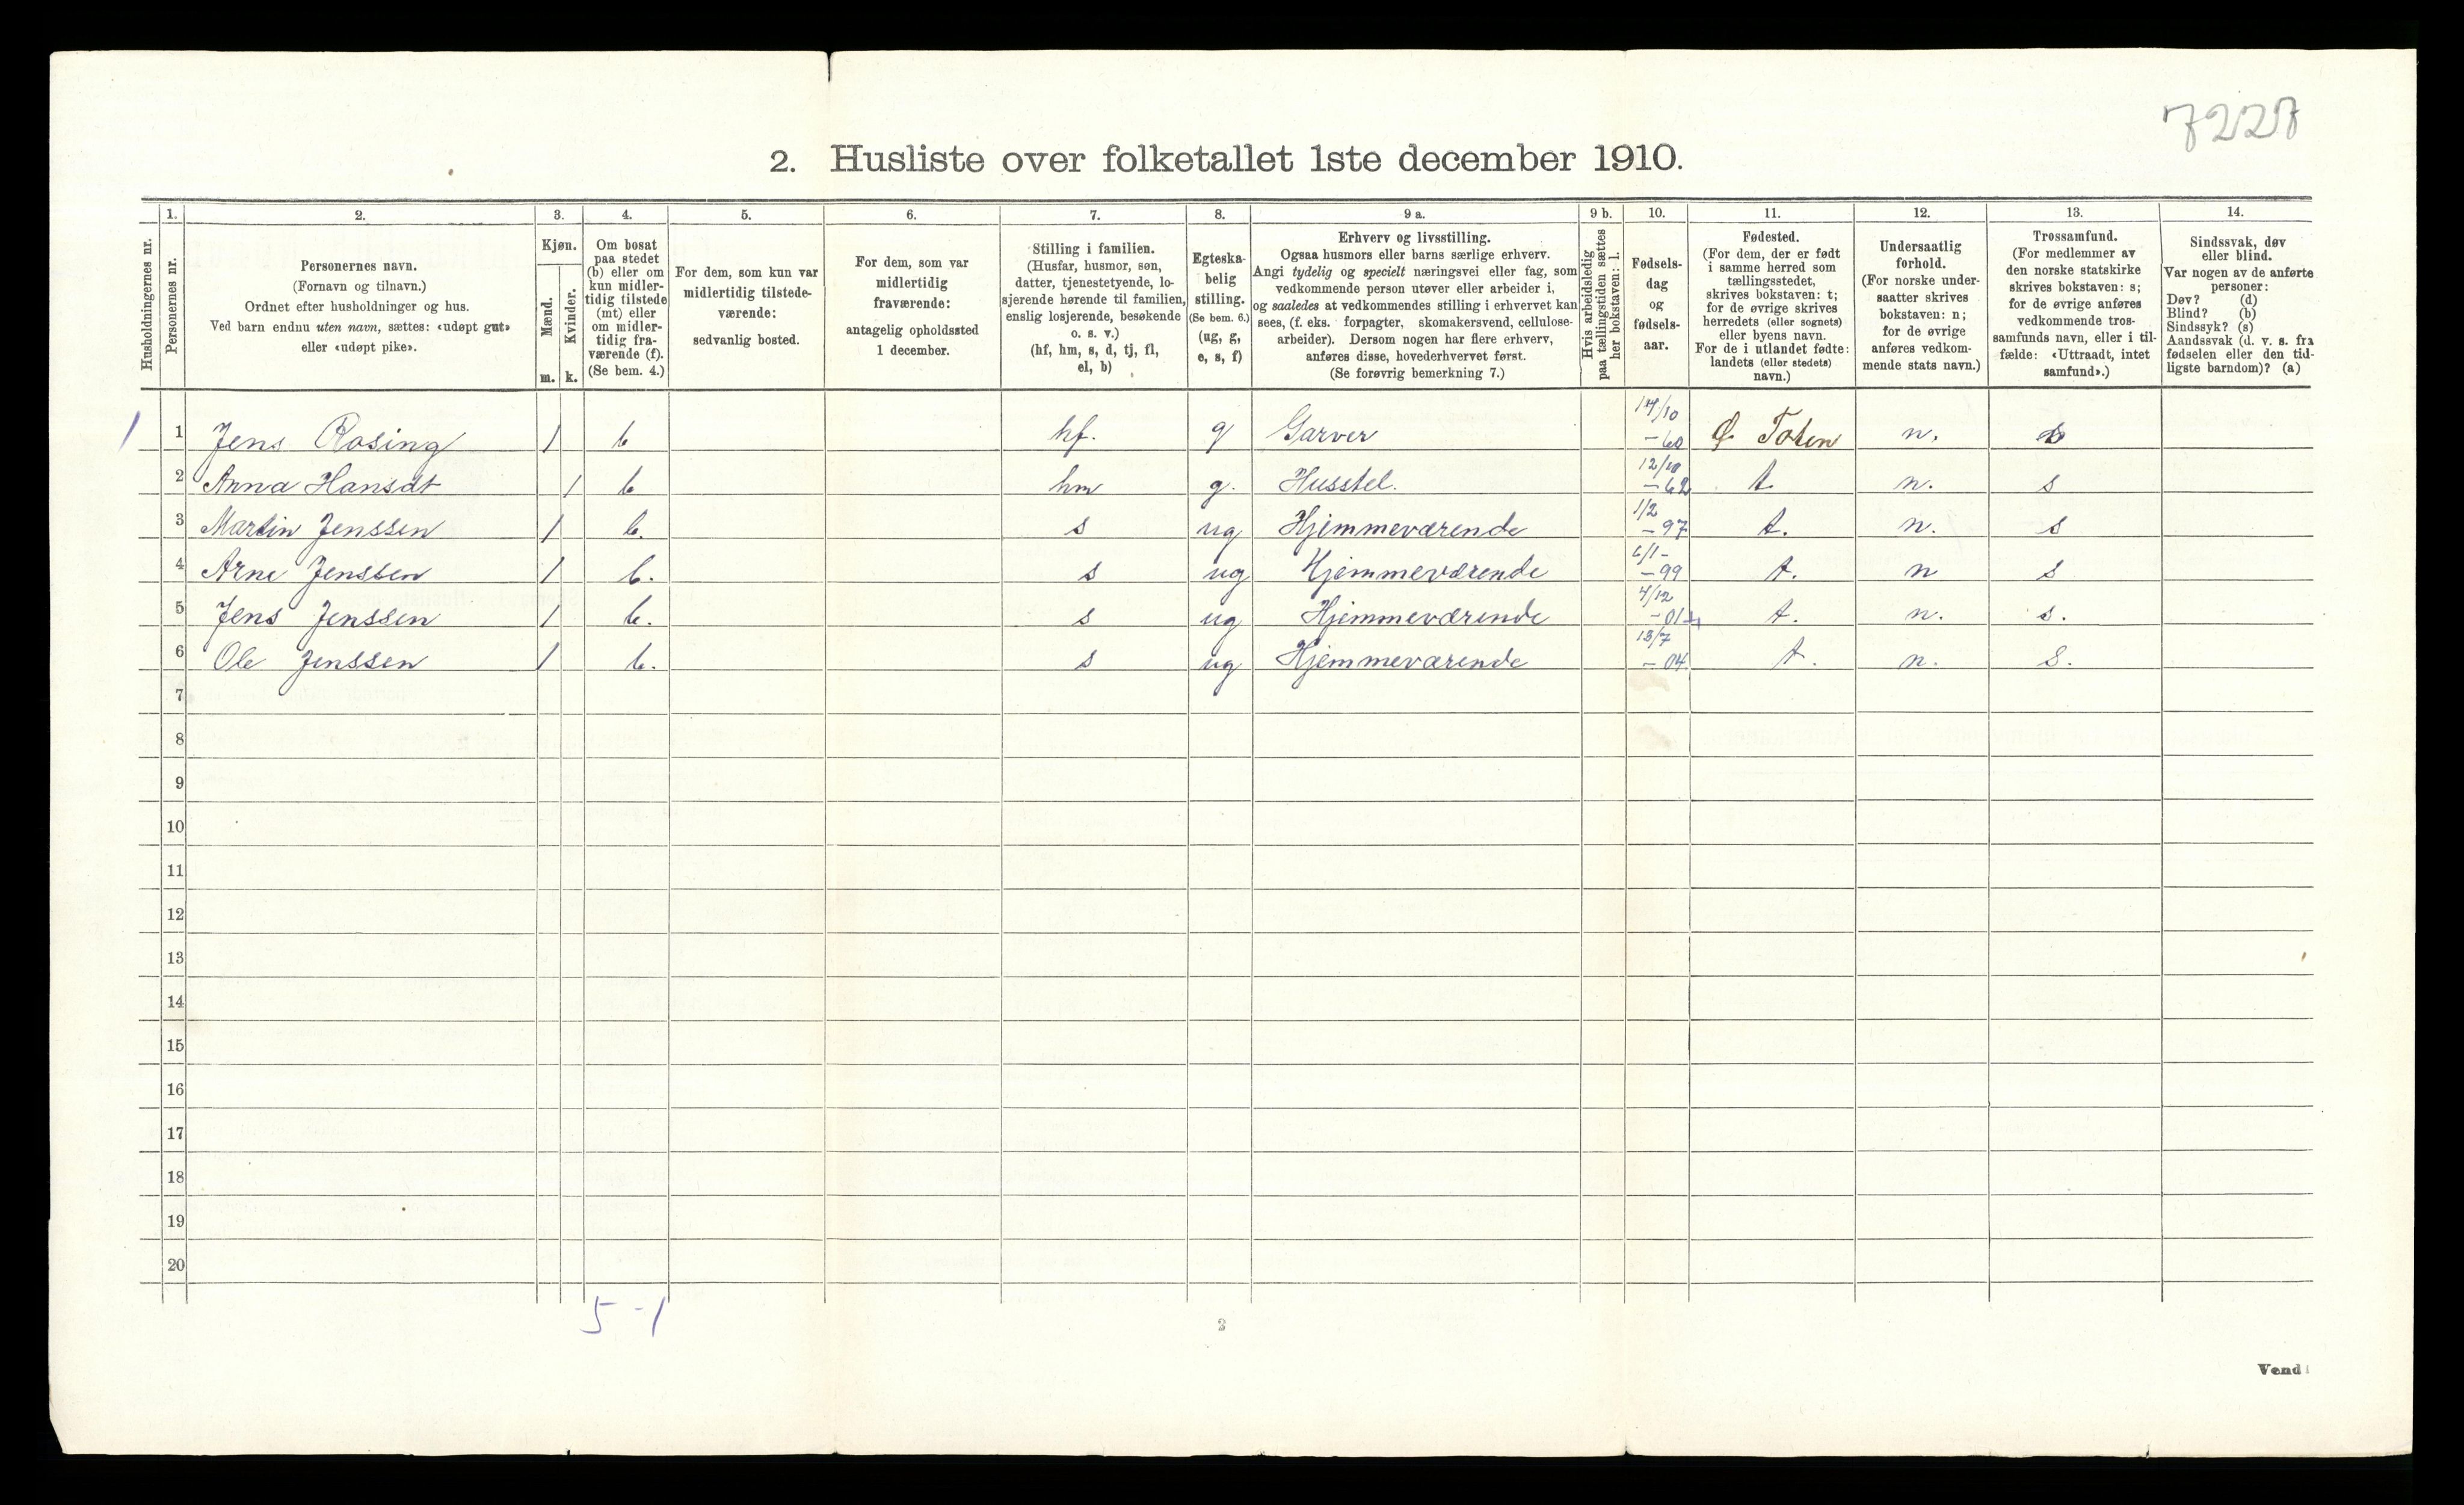 7227
2. Husliste over folketallet 1ste december 1910.
Husholdningernes nr.
1.
Personernes nr.
2.
Personernes navn.
(Fornavn og tilnavn.)
Ordnet efter husholdninger og hus.
Ved barn endnu uten navn, sættes: «udøpt gut»
eller «udøpt pike».
3.
Kjøn.
Mænd.
Kvinder.
m. k.
4.
Om bosat
paa stedet
(b) eller om
kun midler-
tidig tilstede
(mt) eller
om midler-
tidig fra-
værende (f).
(Se bem. 4.)
5.
For dem, som kun var
midlertidig tilstede-
værende:
sedvanlig bosted.
6.
For dem, som var
midlertidig
fraværende:
antagelig opholdssted
1 december.
7.
Stilling i familien.
(Husfar, husmor, søn,
datter, tjenestetyende, lo-
sjerende hørende til familien,
enslig losjerende, besøkende
o. s. v.)
(hf, hm, s, d, tj, fl,
el, b)
8.
Egteska-
belig
stilling.
(Se bem. 6.)
(ug, g,
e, s, f)
9 a.
Erhverv og livsstilling.
Ogsaa husmors eller barns særlige erhverv.
Angi tydelig og specielt næringsvei eller fag, som
vedkommende person utøver eller arbeider i,
og saaledes at vedkommendes stilling i erhvervet kan
sees, (f. eks. forpagter, skomakersvend, cellulose-
arbeider). Dersom nogen har flere erhverv,
anføres disse, hovederhvervet først.
(Se forøvrig bemerkning 7.)
9 b.
Hvis arbeidsledig
paa tællingstiden sættes
her bokstaven: l.
10.
Fødsels-
dag
og
fødsels-
aar.
11.
Fødested.
(For dem, der er født
i samme herred som
tællingsstedet,
skrives bokstaven: t;
for de øvrige skrives
herredets (eller sognets)
eller byens navn.
For de i utlandet fødte:
landets (eller stedets)
navn.)
12.
Undersaatlig
forhold.
(For norske under-
saatter skrives
bokstaven: n;
for de øvrige
anføres vedkom-
mende stats navn.)
13.
Trossamfund.
(For medlemmer av
den norske statskirke
skrives bokstaven: s;
for de øvrige anføres
vedkommende tros-
samfunds navn, eller i til-
fælde: «Uttraadt, intet
samfund».)
14.
Sindssvak, døv
eller blind.
Var nogen av de anførte
personer:
Døv? (d)
Blind? (b)
Sindssyk? (s)
Aandssvak (d. v. s. fra
fødselen eller den tid-
ligste barndom)? (a)
1 1 Jens Rosing 1 b hf. g Garver 14/10 -60 Ø Toten n. s
2 Anna Hansdt 1 b hm g. Husstel. 12/10 -62 t n. s
3 Martin Jenssen 1 b. s ug Hjemmeværende 1/2 -97 t. n. s
4 Arne Jenssen 1 b. s ug Hjemmeværende 6/1- -99 t. n s
5 Jens Jenssen 1 b. s ug Hjemmeværende 4/12 -01 t. n. s.
6 Ole Jenssen 1 b. s ug Hjemmeværende 13/7 -04 t. n. s.
7
8
9
10
11
12
13
14
15
16
17
18
19
20
5 - 1
2
Vend